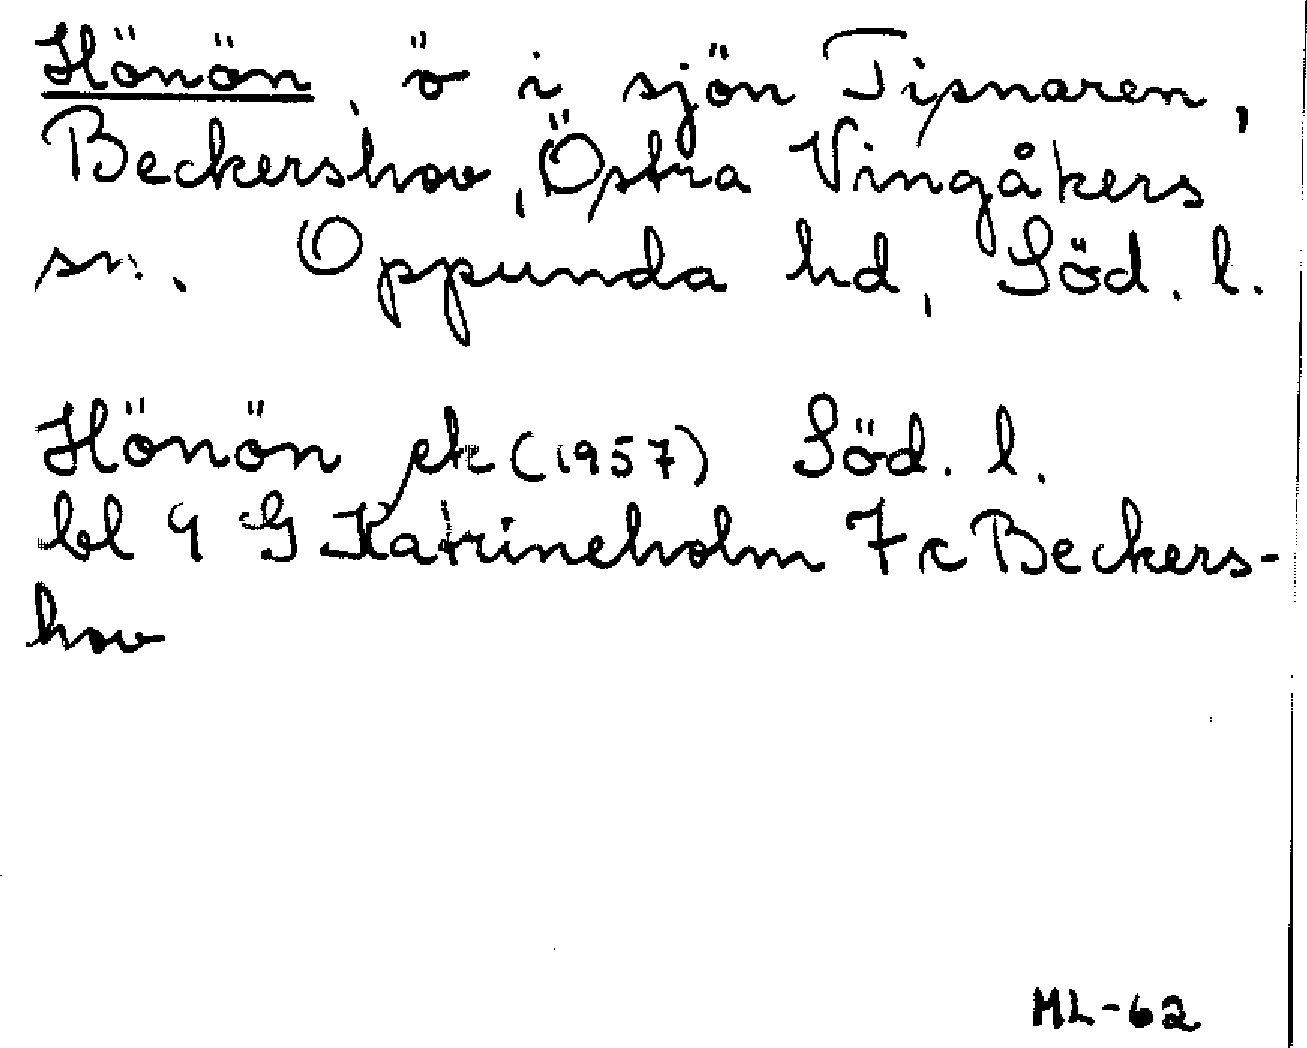 Hönön, ö i sjön Tisnaren,
Beckershov, Östra Vingåkers
sn. Oppunda hd, Söd. l.
Hönön ek (1957) Söd. l.
bl 9 G Katrineholm 7 c Beckers-
hov
ML-62